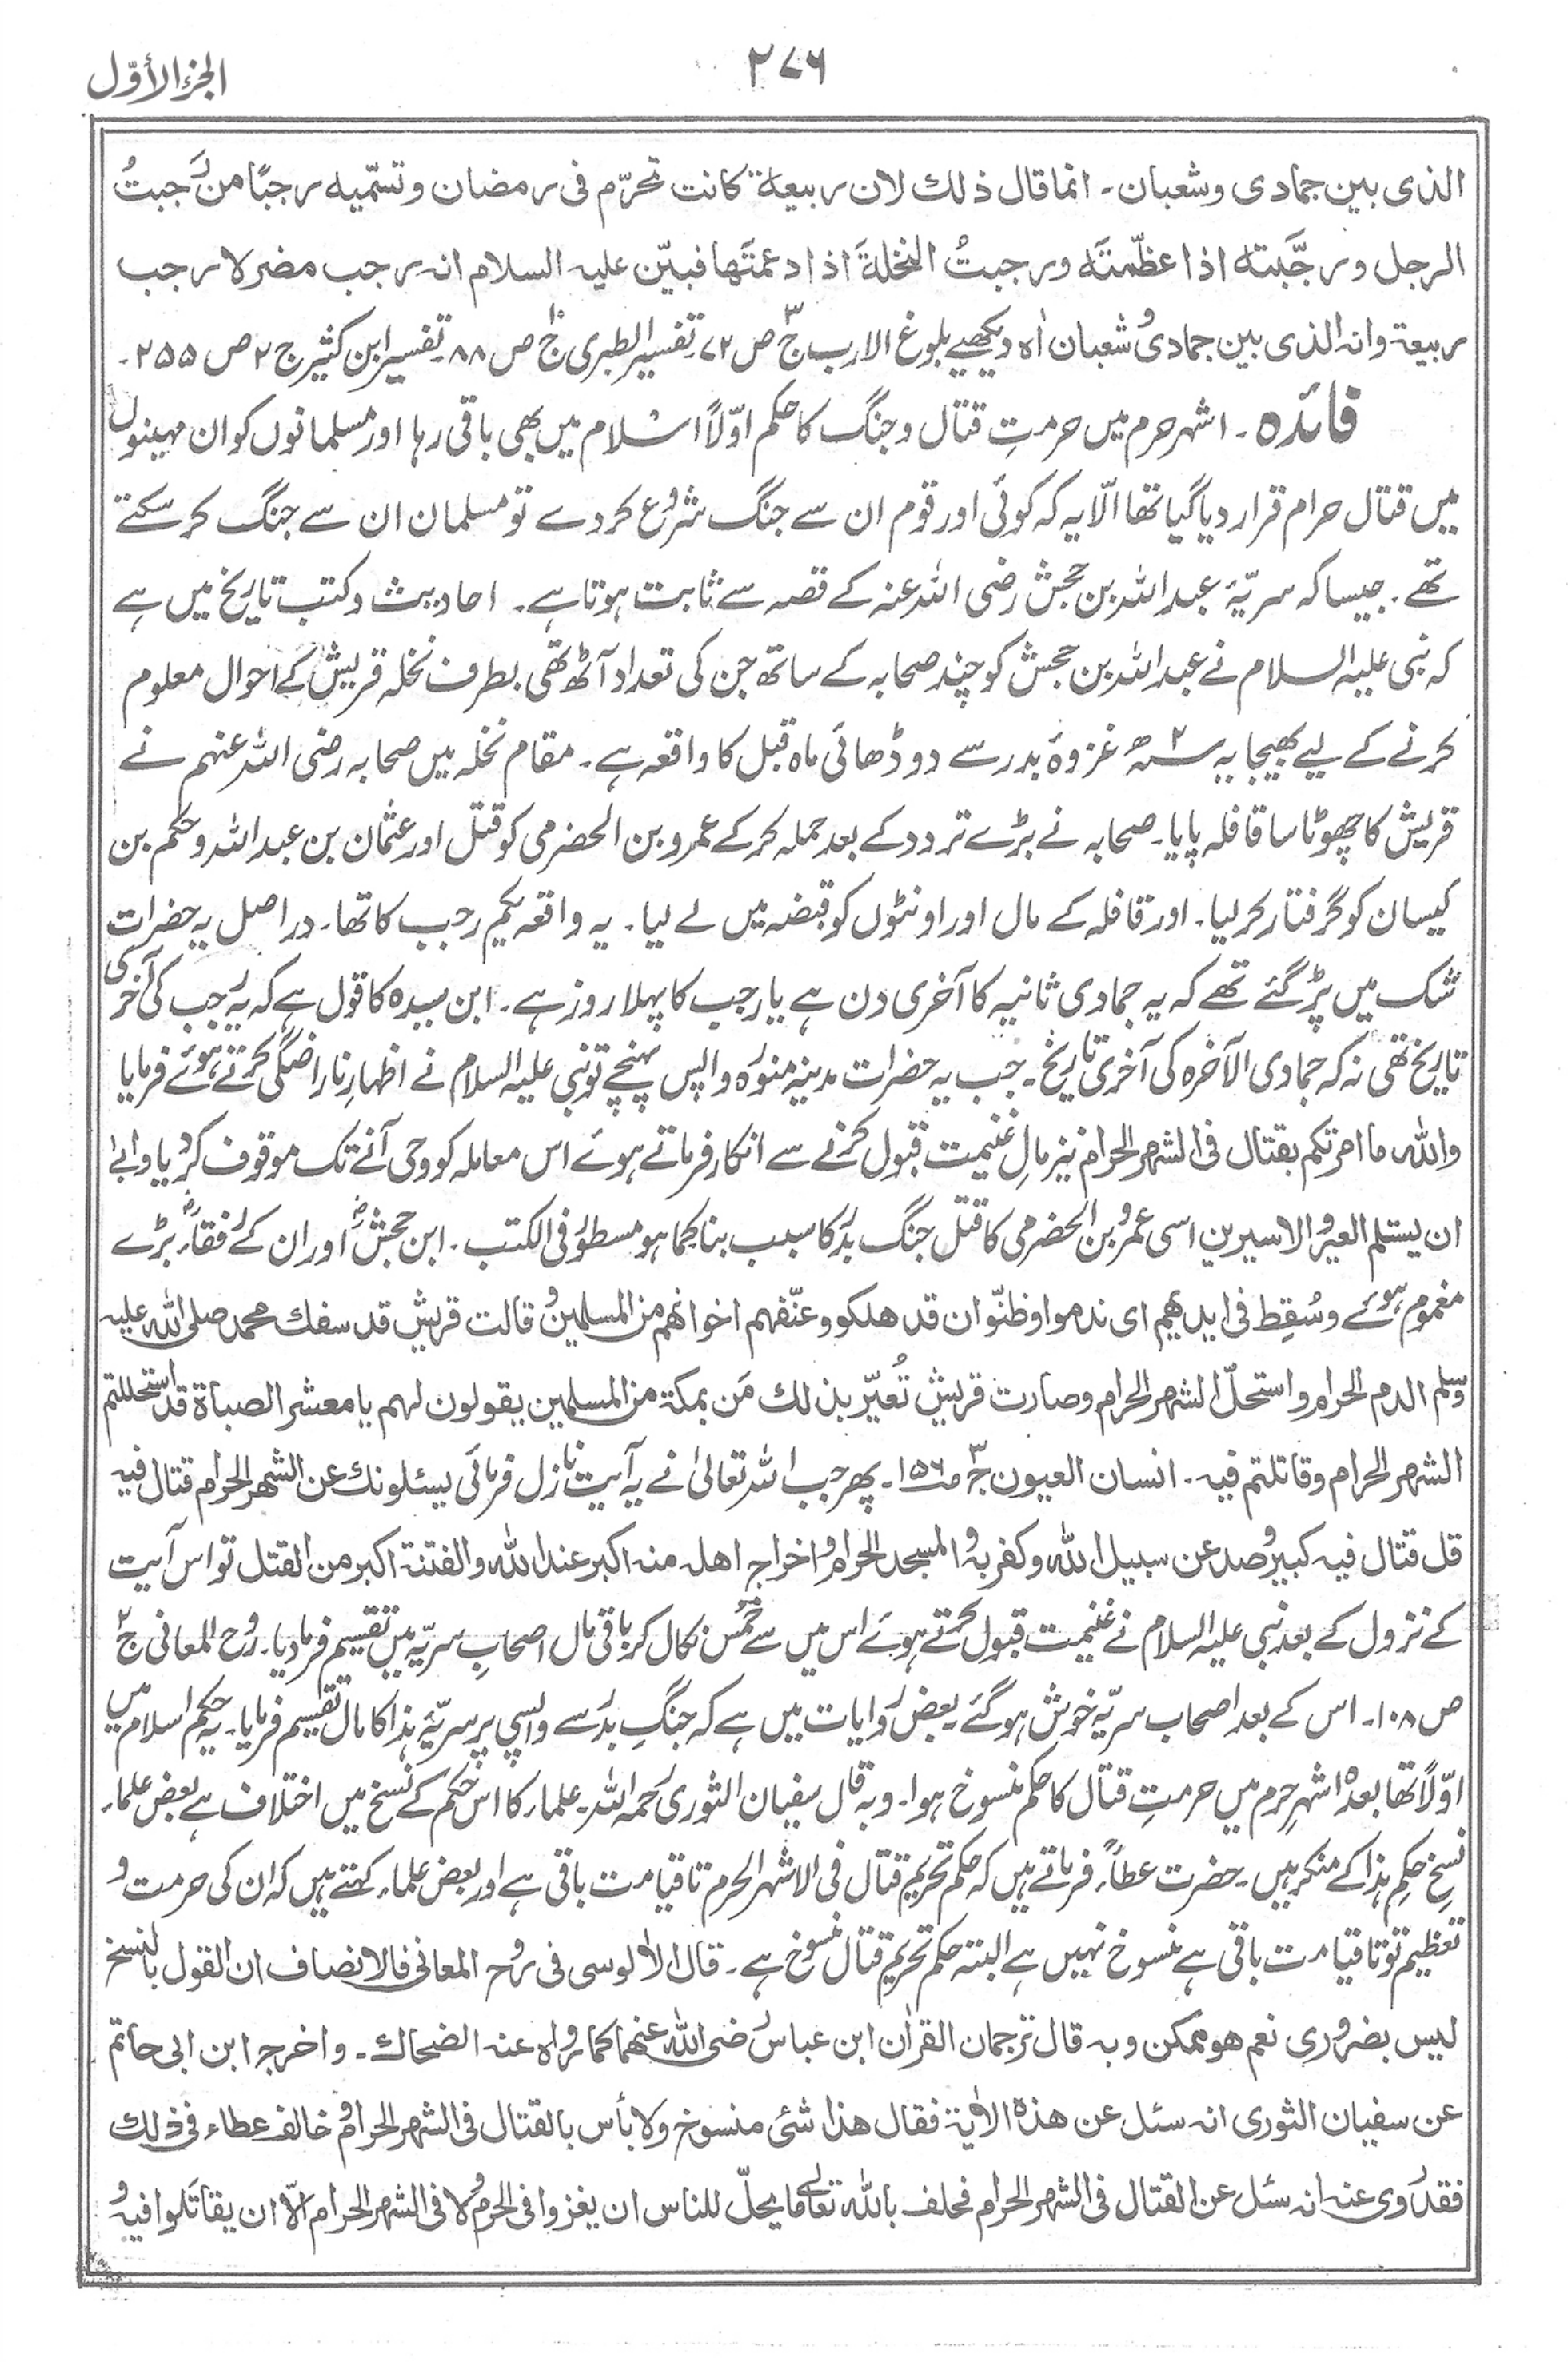 الجزء الأوّل
٢٧٦
الذی بین جمادی وشعبان۔ انما قال ذلك لان ربیعة کانت تحرّم فی رمضان وتسمّیه رجبًا من رَجبتُ
الرجل ورجَّبتہ اذا عظّمتَہ ورجبتُ النخلةَ اذا دعمتَها فبیّن علیہ السلام انہ رجب مضر لا رجب
ربیعۃ وانہ الذی بین جمادی وشعبان اہ دیکھیے بلوغ الارب ج۳ ص ۷۲۔ تفسیر الطبری ج۱۰ ص ۸۸۔ تفسیر ابن کثیر ج ۲ ص ۲۵۵۔
فائدہ۔ اشہر حرم میں حرمتِ قتال و جنگ کا حکم اوّلاً اسلام میں بھی باقی رہا اور مسلمانوں کو ان مہینوں
میں قتال حرام قرار دیا گیا تھا الّا یہ کہ کوئی اور قوم ان سے جنگ شروع کر دے تو مسلمان ان سے جنگ کر سکتے
تھے۔ جیسا کہ سریّۂ عبد اللہ بن جحش رضی اللہ عنہ کے قصہ سے ثابت ہوتا ہے۔ احادیث و کتب تاریخ میں ہے
کہ نبی علیہ السلام نے عبد اللہ بن جحش کو چند صحابہ کے ساتھ جن کی تعداد آٹھ تھی بطرف نخلہ قریش کے احوال معلوم
کرنے کے لیے بھیجا یہ ۲ھ غزوۂ بدر سے دو ڈھائی ماہ قبل کا واقعہ ہے۔ مقام نخلہ میں صحابہ رضی اللہ عنہم نے
قریش کا چھوٹا سا قافلہ پایا۔ صحابہ نے بڑے تردد کے بعد حملہ کر کے عمرو بن الحضرمی کو قتل اور عثمان بن عبد اللہ و حکم بن
کیسان کو گرفتار کر لیا۔ اور قافلہ کے مال اور اونٹوں کو قبضہ میں لے لیا۔ یہ واقعہ یکم رجب کا تھا۔ در اصل یہ حضرات
شک میں پڑ گئے تھے کہ یہ جمادی ثانیہ کا آخری دن ہے یا رجب کا پہلا روز ہے۔ ابن سیدہ کا قول ہے کہ یہ رجب کی آخری
تاریخ تھی نہ کہ جمادی الآخرہ کی آخری تاریخ۔ جب یہ حضرات مدینہ منورہ واپس پہنچے تو نبی علیہ السلام نے اظہارِ ناراضگی کرتے ہوئے فرمایا
واللہ ما امرتکم بقتال فی الشہر الحرام نیز مالِ غنیمت قبول کرنے سے انکار فرماتے ہوئے اس معاملہ کو وحی آنے تک موقوف کر دیا وابیٰ
ان یستلم العیر والاسیرین اسی عمرو بن الحضرمی کا قتل جنگ بدر کا سبب بنا کما ہو مسطور فی الکتب۔ ابن جحشؓ اور ان کے رفقاءؓ بڑے
مغموم ہوئے وسُقِط فی ایدیہم ای ندموا وظنّوا ان قد ہلکو وعنّفہم اخوانہم من المسلمین وقالت قریش قد سفك محمد صلی اللہ علیہ
وسلم الدم الحرام واستحلّ الشہر الحرام وصارت قریش تُعیّر بذلك مَن بمکۃ من المسلمین یقولون لہم یا معشر الصباۃ قد استحللتم
الشہر الحرام وقاتلتم فیہ۔ انسان العیون ج۳ ص۱۵۶۔ پھر جب اللہ تعالیٰ نے یہ آیت نازل فرمائی یسئلونك عن الشہر الحرام قتال فیہ
قل قتال فیہ کبیر وصد عن سبیل اللہ وکفر بہ والمسجد الحرام واخراج اہلہ منہ اکبر عند اللہ والفتنۃ اکبر من القتل تو اس آیت
کے نزول کے بعد نبی علیہ السلام نے غنیمت قبول کرتے ہوئے اس میں سے خمس نکال کر باقی مال اصحابِ سریّہ میں تقسیم فرما دیا۔ روح المعانی ج۲
ص ۱۰۸۔ اس کے بعد اصحاب سریّہ خوش ہو گئے۔ بعض روایات میں ہے کہ جنگِ بدر سے واپسی پر سریّۂ ہذا کا مال تقسیم فرمایا۔ یہ حکم اسلام میں
اوّلاً تھا بعدہٗ اشہرِ حرم میں حرمتِ قتال کا حکم منسوخ ہوا۔ وبہ قال سفیان الثوری رحمہ اللہ۔ علماء کا اس حکم کے نسخ میں اختلاف ہے بعض علماء
نسخِ حکمِ ہذا کے منکر ہیں۔ حضرت عطاءؒ فرماتے ہیں کہ حکم تحریم قتال فی الاشہر الحرم تا قیامت باقی ہے اور بعض علماء کہتے ہیں کہ ان کی حرمت و
تعظیم تو تا قیامت باقی ہے منسوخ نہیں ہے البتہ حکم تحریم قتال منسوخ ہے۔ قال الاٰلوسی فی روح المعانی فالانصاف ان القول بالنسخ
لیس بضروری نعم هو ممکن وبہ قال ترجمان القراٰن ابن عباس رضی اللہ عنہما کما رواہ عنہ الضحاك۔ واخرج ابن ابی حاتم
عن سفیان الثوری انہ سئل عن هذہ الاٰیۃ فقال هذا شئی منسوخ ولا بأس بالقتال فی الشہر الحرام وخالف عطاء فی ذلك
فقد روی عنہ انہ سئل عن القتال فی الشہر الحرام فحلف باللہ تعالیٰ ما یحلّ للناس ان یغزوا فی الحرم ولا فی الشہر الحرام الّا ان یقاتَلوا فیہ و